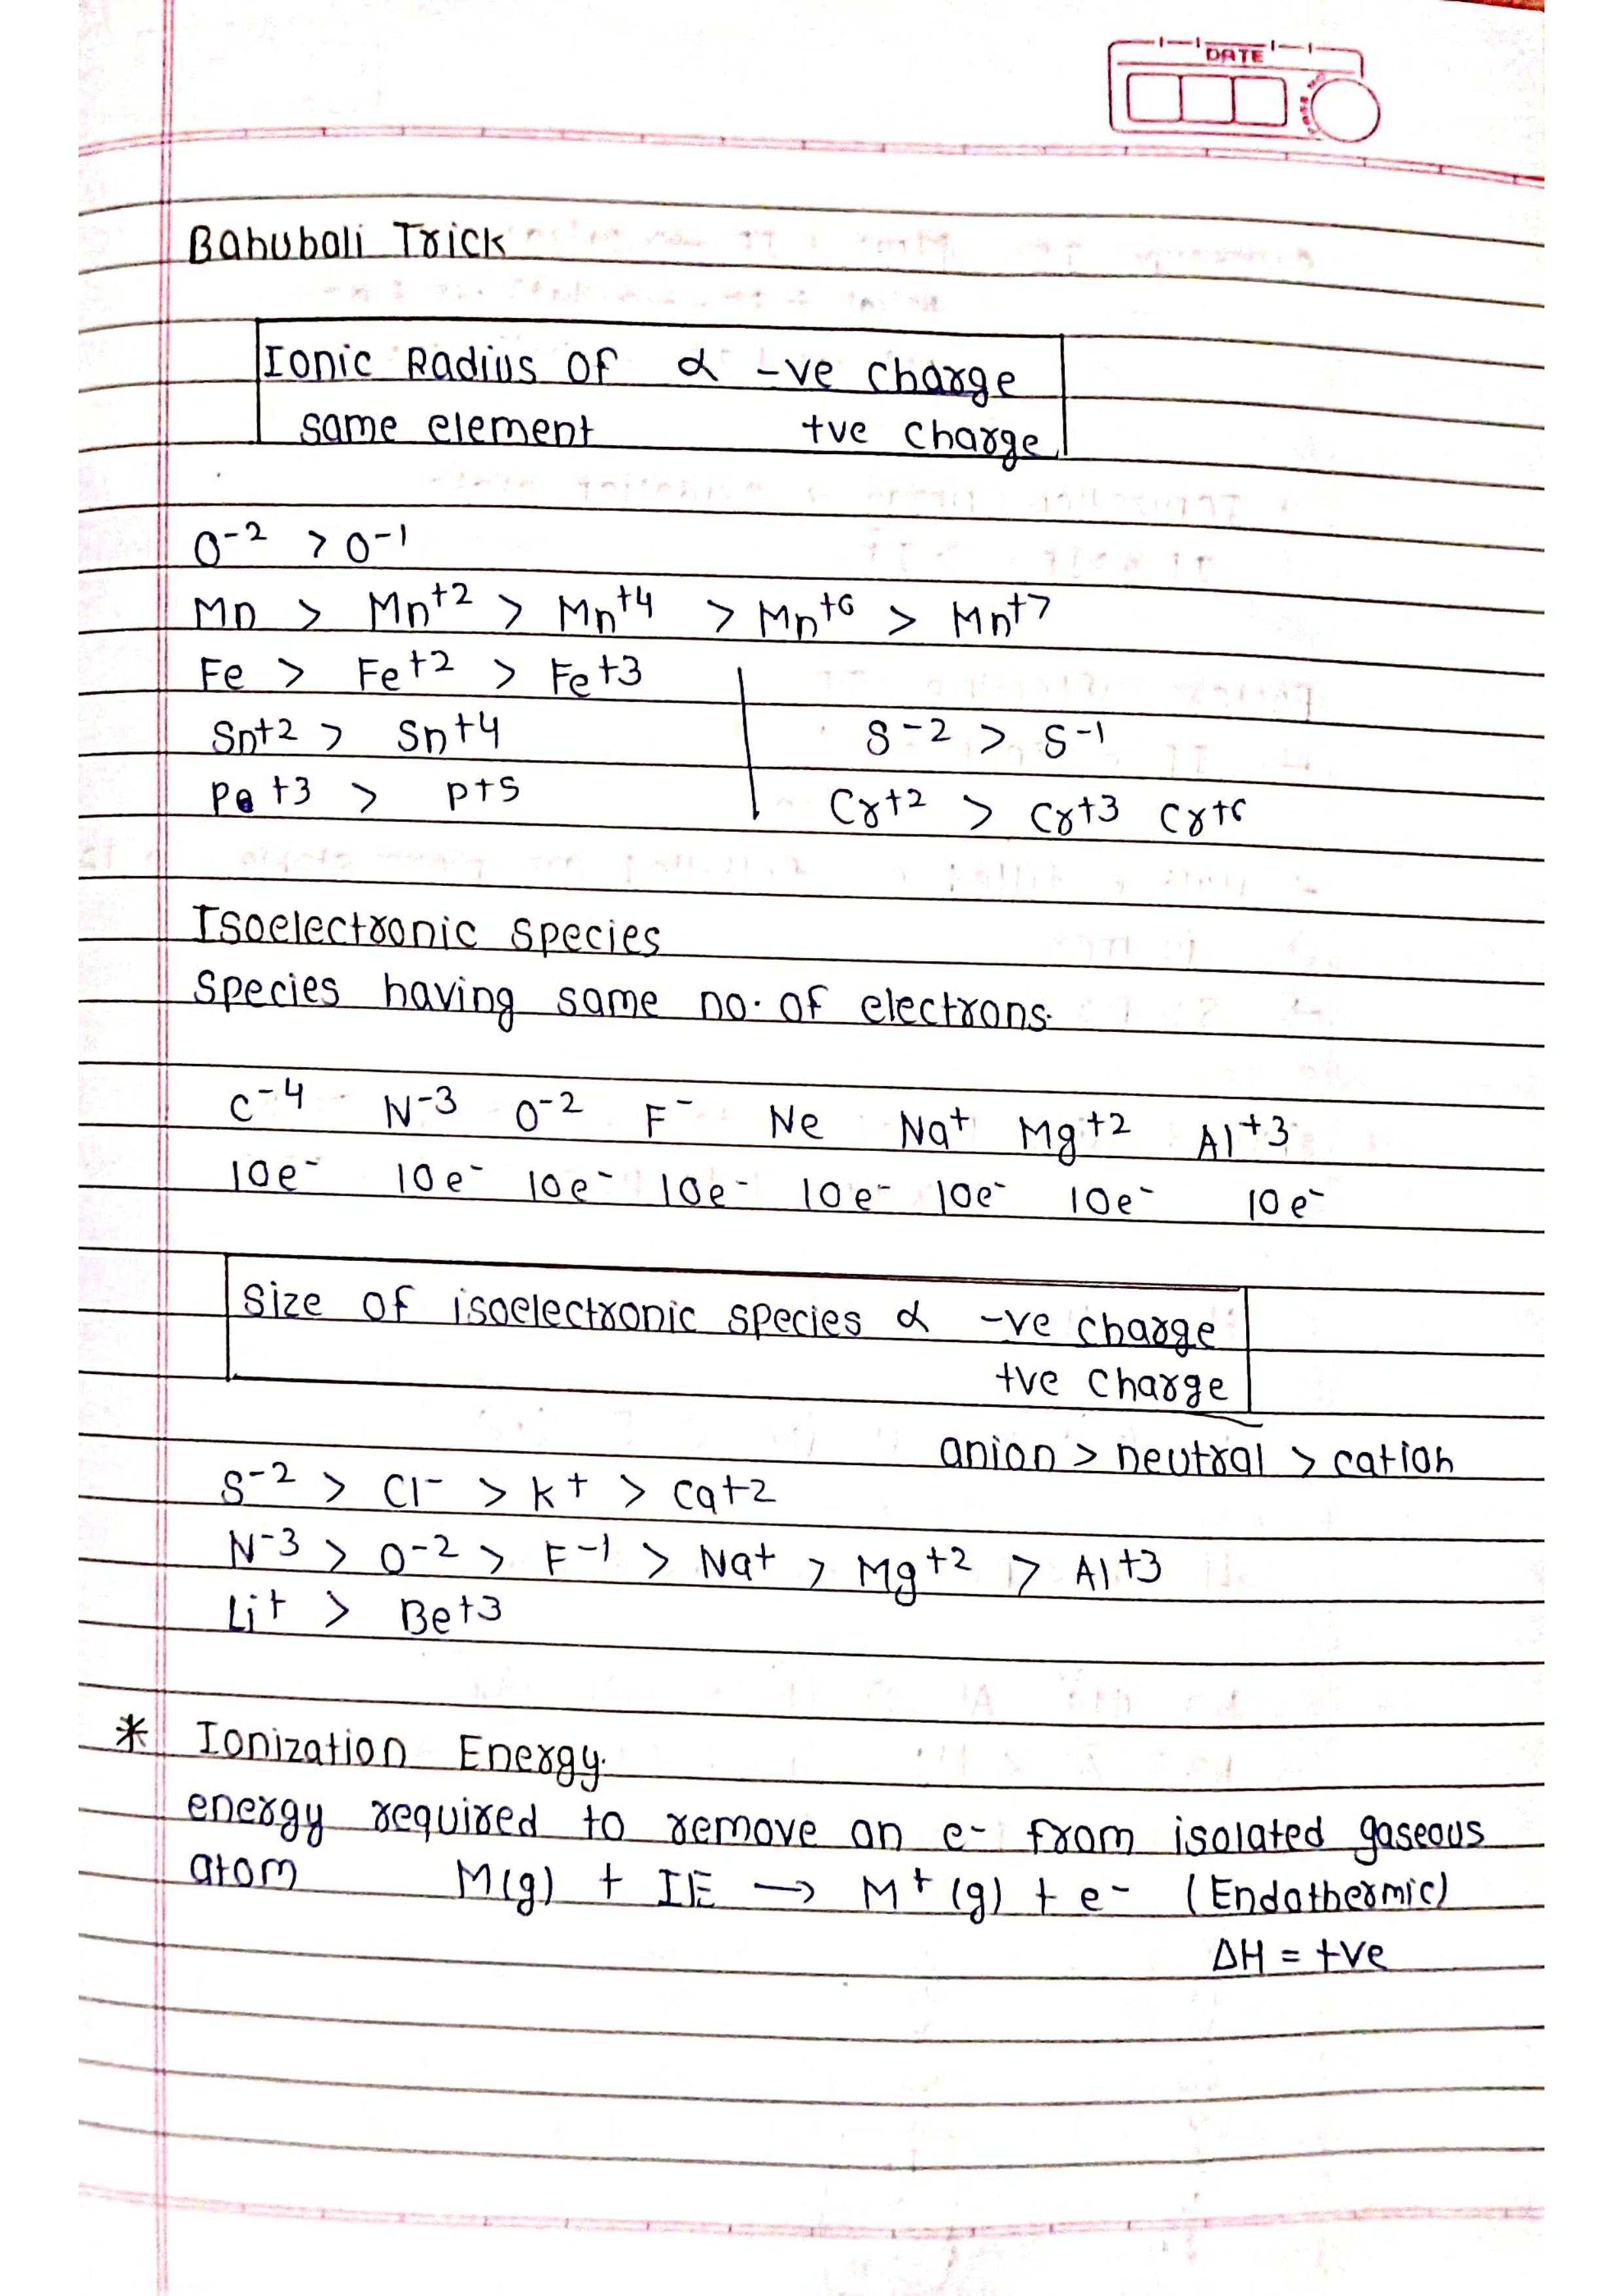 DATE
Bahubali Trick
Ionic Radius of α -ve charge
same element +ve charge
O-2 > O-1
Mn > Mn+2 > Mn+4 > Mn+6 > Mn+7
Fe > Fe+2 > Fe+3
Sn+2 > Sn+4 S-2 > S-1
P+3 > P+5 Cr+2 > Cr+3 Cr+6
Isoelectronic species
Species having same no. of electrons.
C-4 N-3 O-2 F- Ne Na+ Mg+2 Al+3
10e- 10e- 10e- 10e- 10e- 10e- 10e- 10e-
Size of isoelectronic species α -ve charge
+ve charge
anion > neutral > cation
S-2 > Cl- > K+ > Ca+2
N-3 > O-2 > F-1 > Na+ > Mg+2 > Al+3
Li+ > Be+3
* Ionization Energy.
energy required to remove an e- from isolated gaseous
atom M(g) + IE → M+(g) + e- (Endothermic)
ΔH = +ve